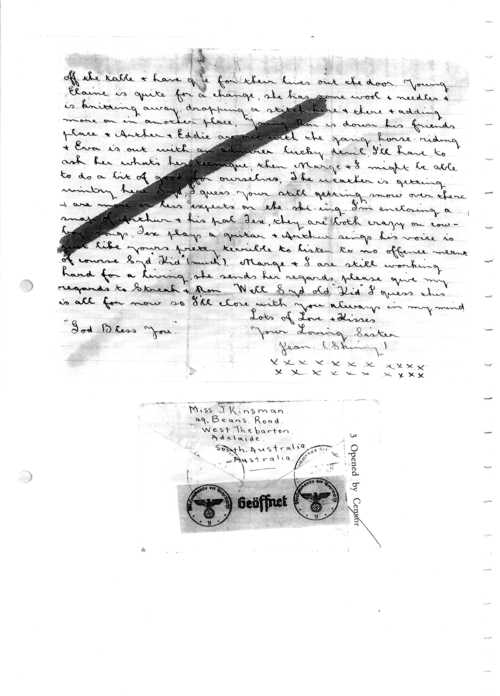 off the table & have q s for their lives out the door. Young
Elaine is quite for a change, she has some wool & needles &
is knitting away dropping a stitch here & there & adding
more on in another place, Young Ron is down his friends
place & Arther & Eddie are out with the gang horse riding
& Eva is out with an lucky devil I'll have to
ask her what's her then Marge & I might be able
to do a bit of good for ourselves. The weather is getting
wintry here I guess your still getting snow over there
& are in this respects as the she-ing I'm enclosing a
snap of Arther & his pal Tex, they are both crazy on cow-
boy songs. Tex plays a guitar & Arther sings his voice is
just like yours pretty terrible to liste to no offence meant
of course Syd "Kid" (much!) Marge & I are still working
hard for a living, she sends her regards, please give my
regards to & Ron. Well Syd old "Kid" I guess this
is all for now so I'll close with you always in my mind
Lots of Love & Kisses
"God Bless You" Your Loving Sister
Jean
x x x x x x x x x x
x x x x x x x x x x
Miss J Kinsman
Beans Road
West Thebarton
Adelaide
South Australia
Australia
3 Opened by Censor
Geöffnet